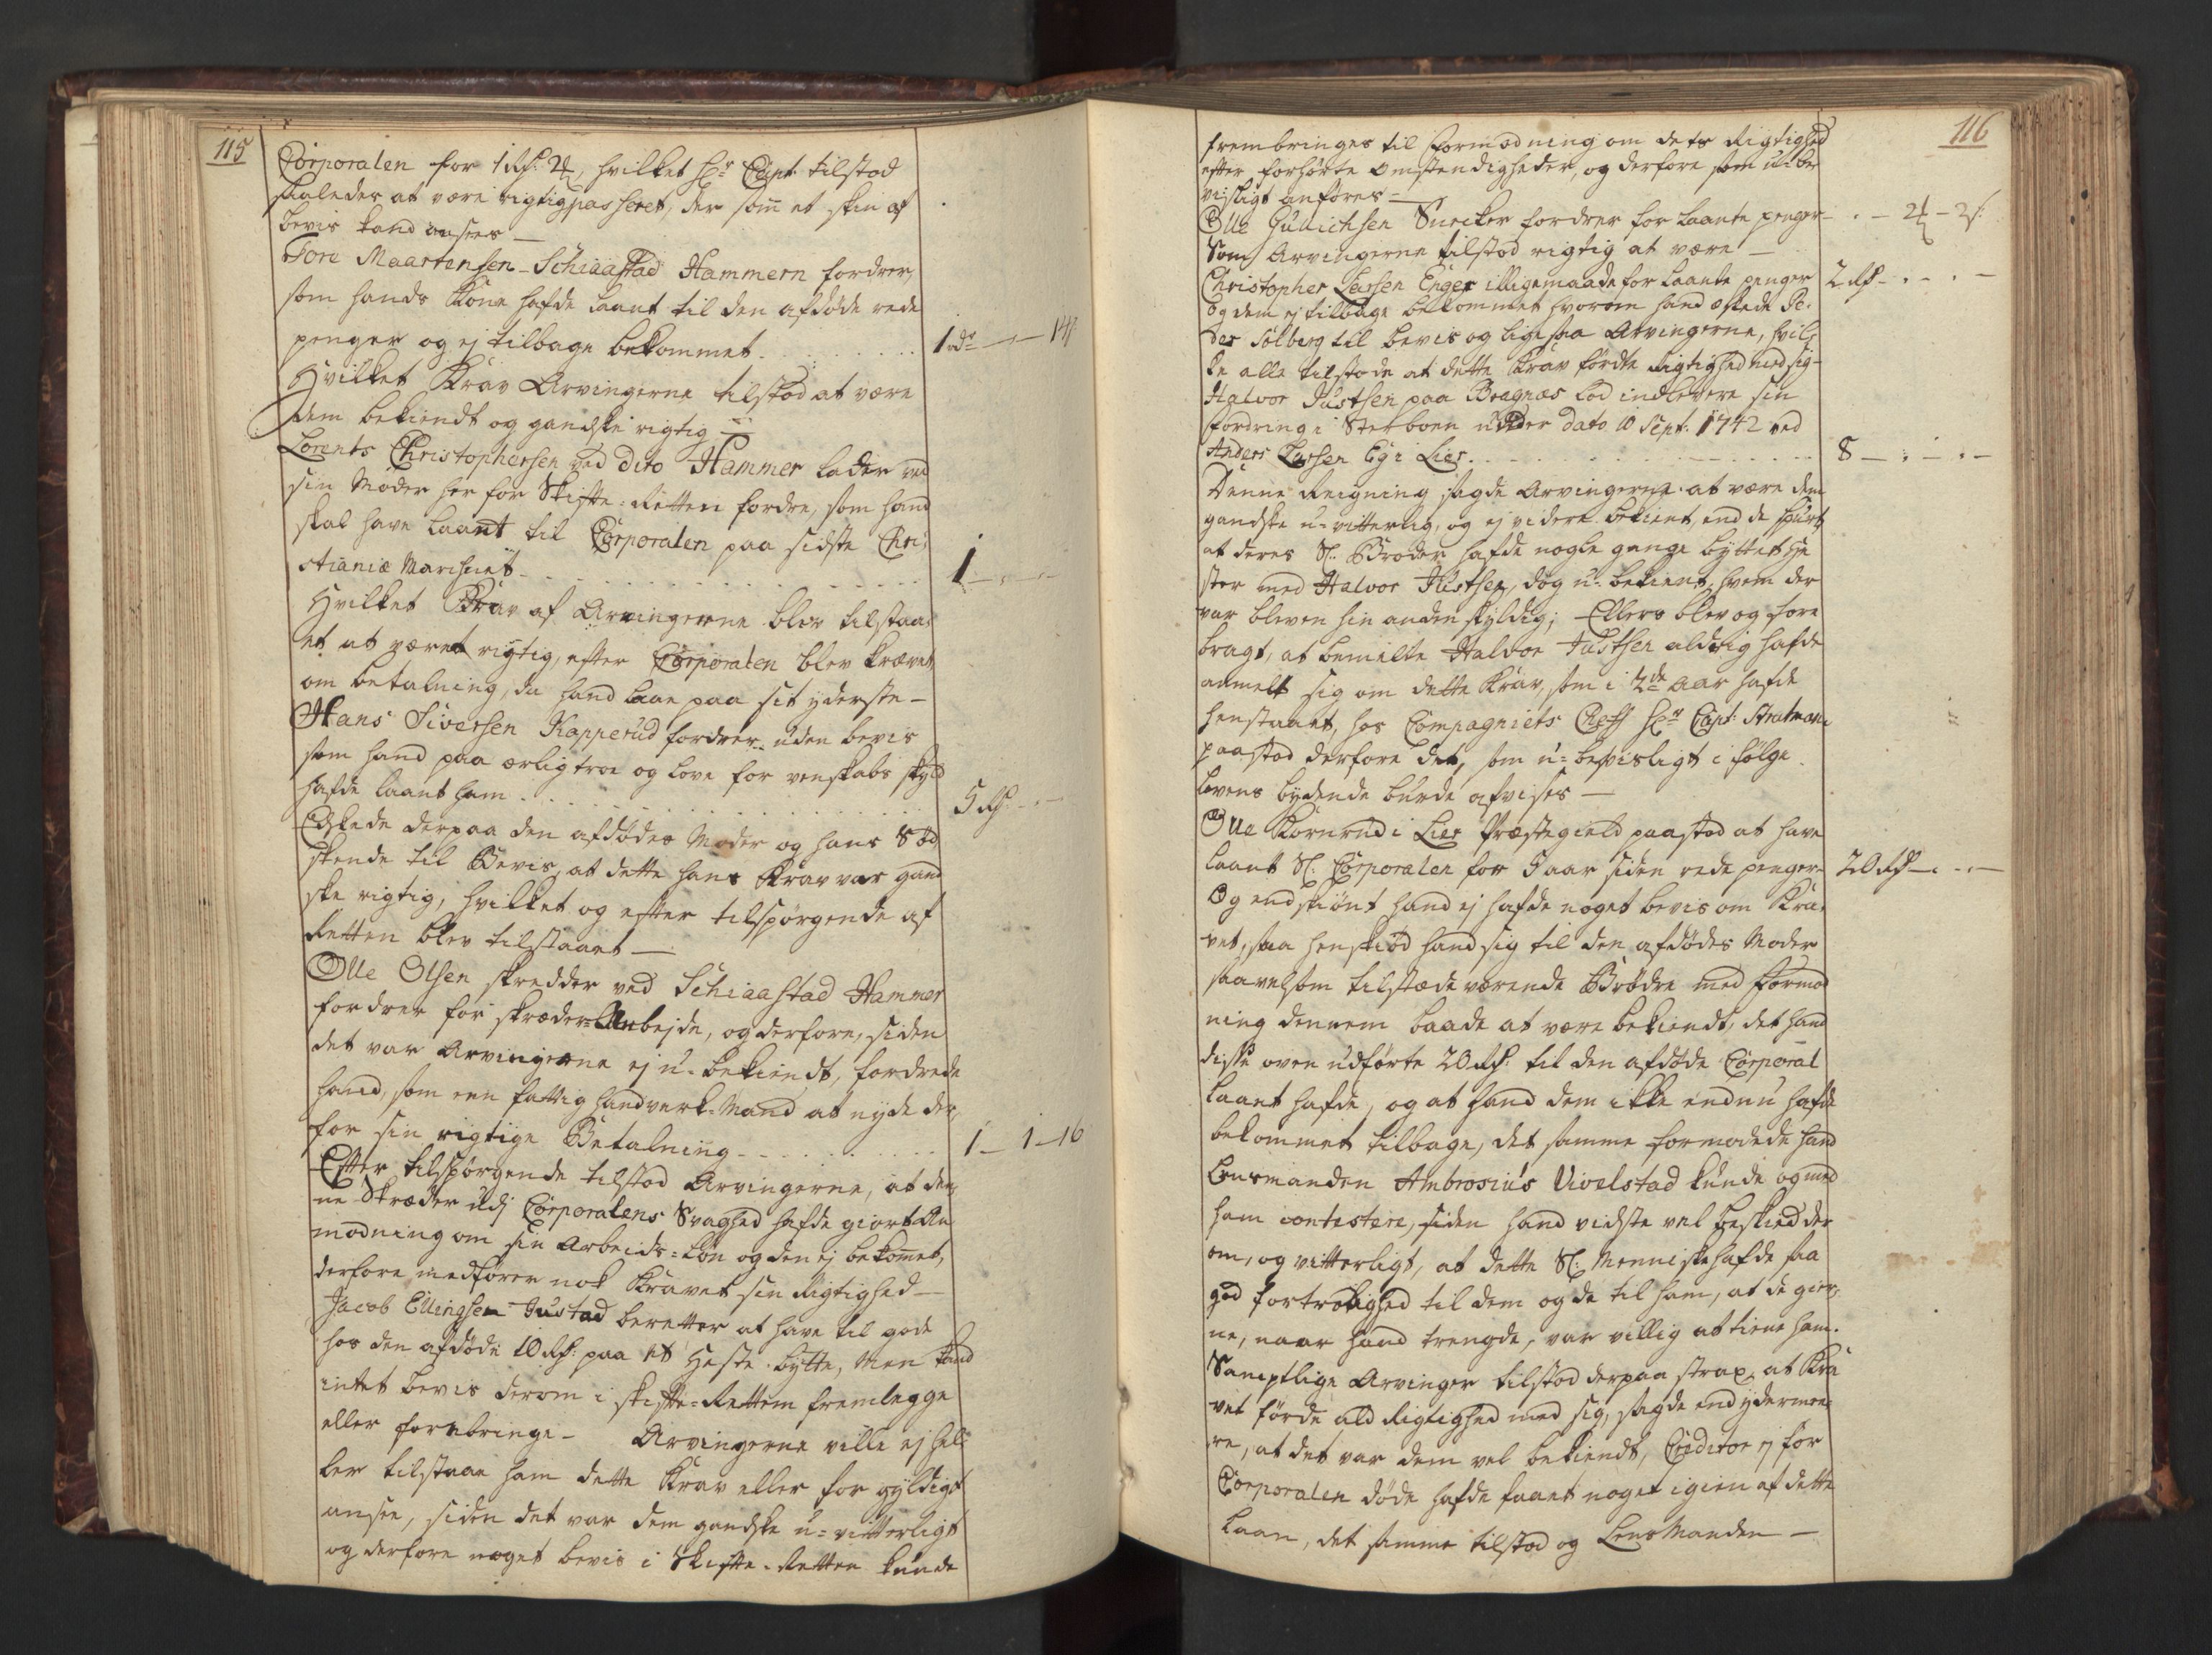 115
Corporalen for 1 Rd: 2 ₰, hvilket Hr: Capt: tilstod
saaledes at være rigtig passeret, der som et skin af
bevis kand ansees —
Tore Maartensen Schiaastad Hammern fordrer,
som hands Kone hafde laant til den afdøde rede
penger og ej tilbage bekommet . . . 1 odr — „ — 14
Hvilket Krav Arvingerne tilstod at være
dem bekiendt og gandske rigtig —
Lorents Christophersen ved dito Hammer lader ved
sin Moder her for Skifte-Retten fordre, som hand
skal have laant til Corporalen paa sidste Chri-
stianiæ Marchnet . . . 1 — „ — „ —
Hvilket Krav af Arvingerne blev tilstaa-
et at været rigtig, efter Corporalen blev krævet
om betalning, da hand laae paa sit yderste —
Hans Siversen Kapperud fordrer uden bevis
som hand paa ærlig troe og love for venskabs skyld
hafde laant ham . . . 5 Rd — „ —
Edskede derpaa den afdødes Moder og hans Sød-
skende til Bevis, at dette hans Krav var gand-
ske rigtig, hvilket og efter tilspørgende af
Retten blev tilstaaet —
Olle Olsen skredder ved Schiaastad Hammer
fordrer for skræder-Arbejde, og derfore, siden
det var Arvingerne ej u-bekiendt, fordrede
hand, som een fattig handverk-Mand at nyde der-
for sin rigtige Betalning . . . 1 — 1 — 16
Efter tilspørgende tilstod Arvingerne, at den-
ne Skræder udj Corporalens Svaghed hafde giort An-
modning om sin Arbeids-Løn og den ej bekomet,
derfore medfører nok Kravet sin Rigtighed —
Jacob Ellingsen Gustad beretter at have til gode
hos den afdøde 10 Rd: paa et Heste-bytte, Men kand
intet bevis derom i skifte-Retten fremlegge
eller forebringe — Arvingerne ville ej hel-
ler tilstaae ham dette Krav eller for gyldigt
ansee, siden det var dem gandske u-vitterligt
og derfore noget bevis i Skifte-Retten kunde
116
frembringes til formodning om dets Rigtighed
efter forhørte Omstendigheder, og derfore som u-be-
visligt anføres —
Olle Gulichsen Surcker fordrer for laante penger — . — 2 ₰ — 2 s:
Som Arvingerne tilstod rigtig at være —
Christopher Larsen Enger illigemaade for laante penger 2 Rd — . — . —
og dem ej tilbage bekommet hvorom hand æskede Pe-
der Solberg til bevis og ligesaa Arvingerne, hvil-
ke alle tilstode at dette Krav førdte Rigtighed med sig —
Halvor Justsen paa Bragnæs lod indlevere sin
fordring i Sterboen under dato 10 Sept: 1742 ved
Anders Larsen Eg i Lier . . . 8 — . — . —
Denne Reigning sagde Arvingerne at være dem
gandske u-vitterlig, og ej videre bekient, end de spurt
at deres Sl: Broder hafde nogle gange byttet he-
ster med Halvor Justsen, dog u-bekient, hvem der
var bleven hin anden skyldig; Ellers blev og fore
bragt, at bemelte Halvor Justsen aldrig hafde
anmelt sig om dette Krav, som i 2de Aar hafde
henstaaet, hos Compagniets Cheff Hr: Capt: Stratman
paastod derfore det, som u-bevisligt i følge
lovens bydende burde afvises —
Olle Kornrud i Lier Præstegield paastod at have
laant Sl: Corporalen for 5 aar siden rede penger 20 Rd — . — . —
Og endskiønt hand ej hafde noget bevis om Kra-
vet, saa henskiød hand sig til den afdødes Moder
saavelsom tilstædeværende Brødre med formod-
ning dennem baade at være bekiendt, det hand
disse oven udførte 20 Rd: til den afdøde Corporal
laant hafde, og at hand dem ikke endnu hafde
bekommet tilbage, det samme formodede hand
Lensmanden Ambrosius Vivelstad kunde og med
ham contestere, siden hand vidste vel beskied der
om, og vitterligt, at dette Sl: Menniske hafde saa
god fortrolighed til dem og de til ham, at de gier-
ne, naar hand trengde, var villig at tiene ham.
Samptlige Arvinger tilstod derpaa strax, at Kra-
vet førde ald Rigtighed med sig, sagde end ydermee-
re, at det var dem vel bekiendt, Creditor ej for
Corporalen døde hafde faaet noget igien af dette
Laan, det samme tilstod og LensManden —